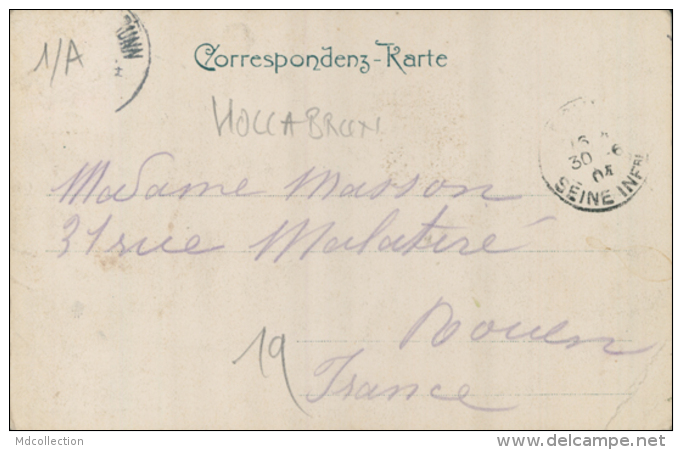 1/A
UNN
Correspondenz-Karte
HOLLABRUN
30 6
04
SEINE INFRE
Madame Masson
31 rue Malatiré
Rouen
France
19
Mdcollection
www.delcampe.net